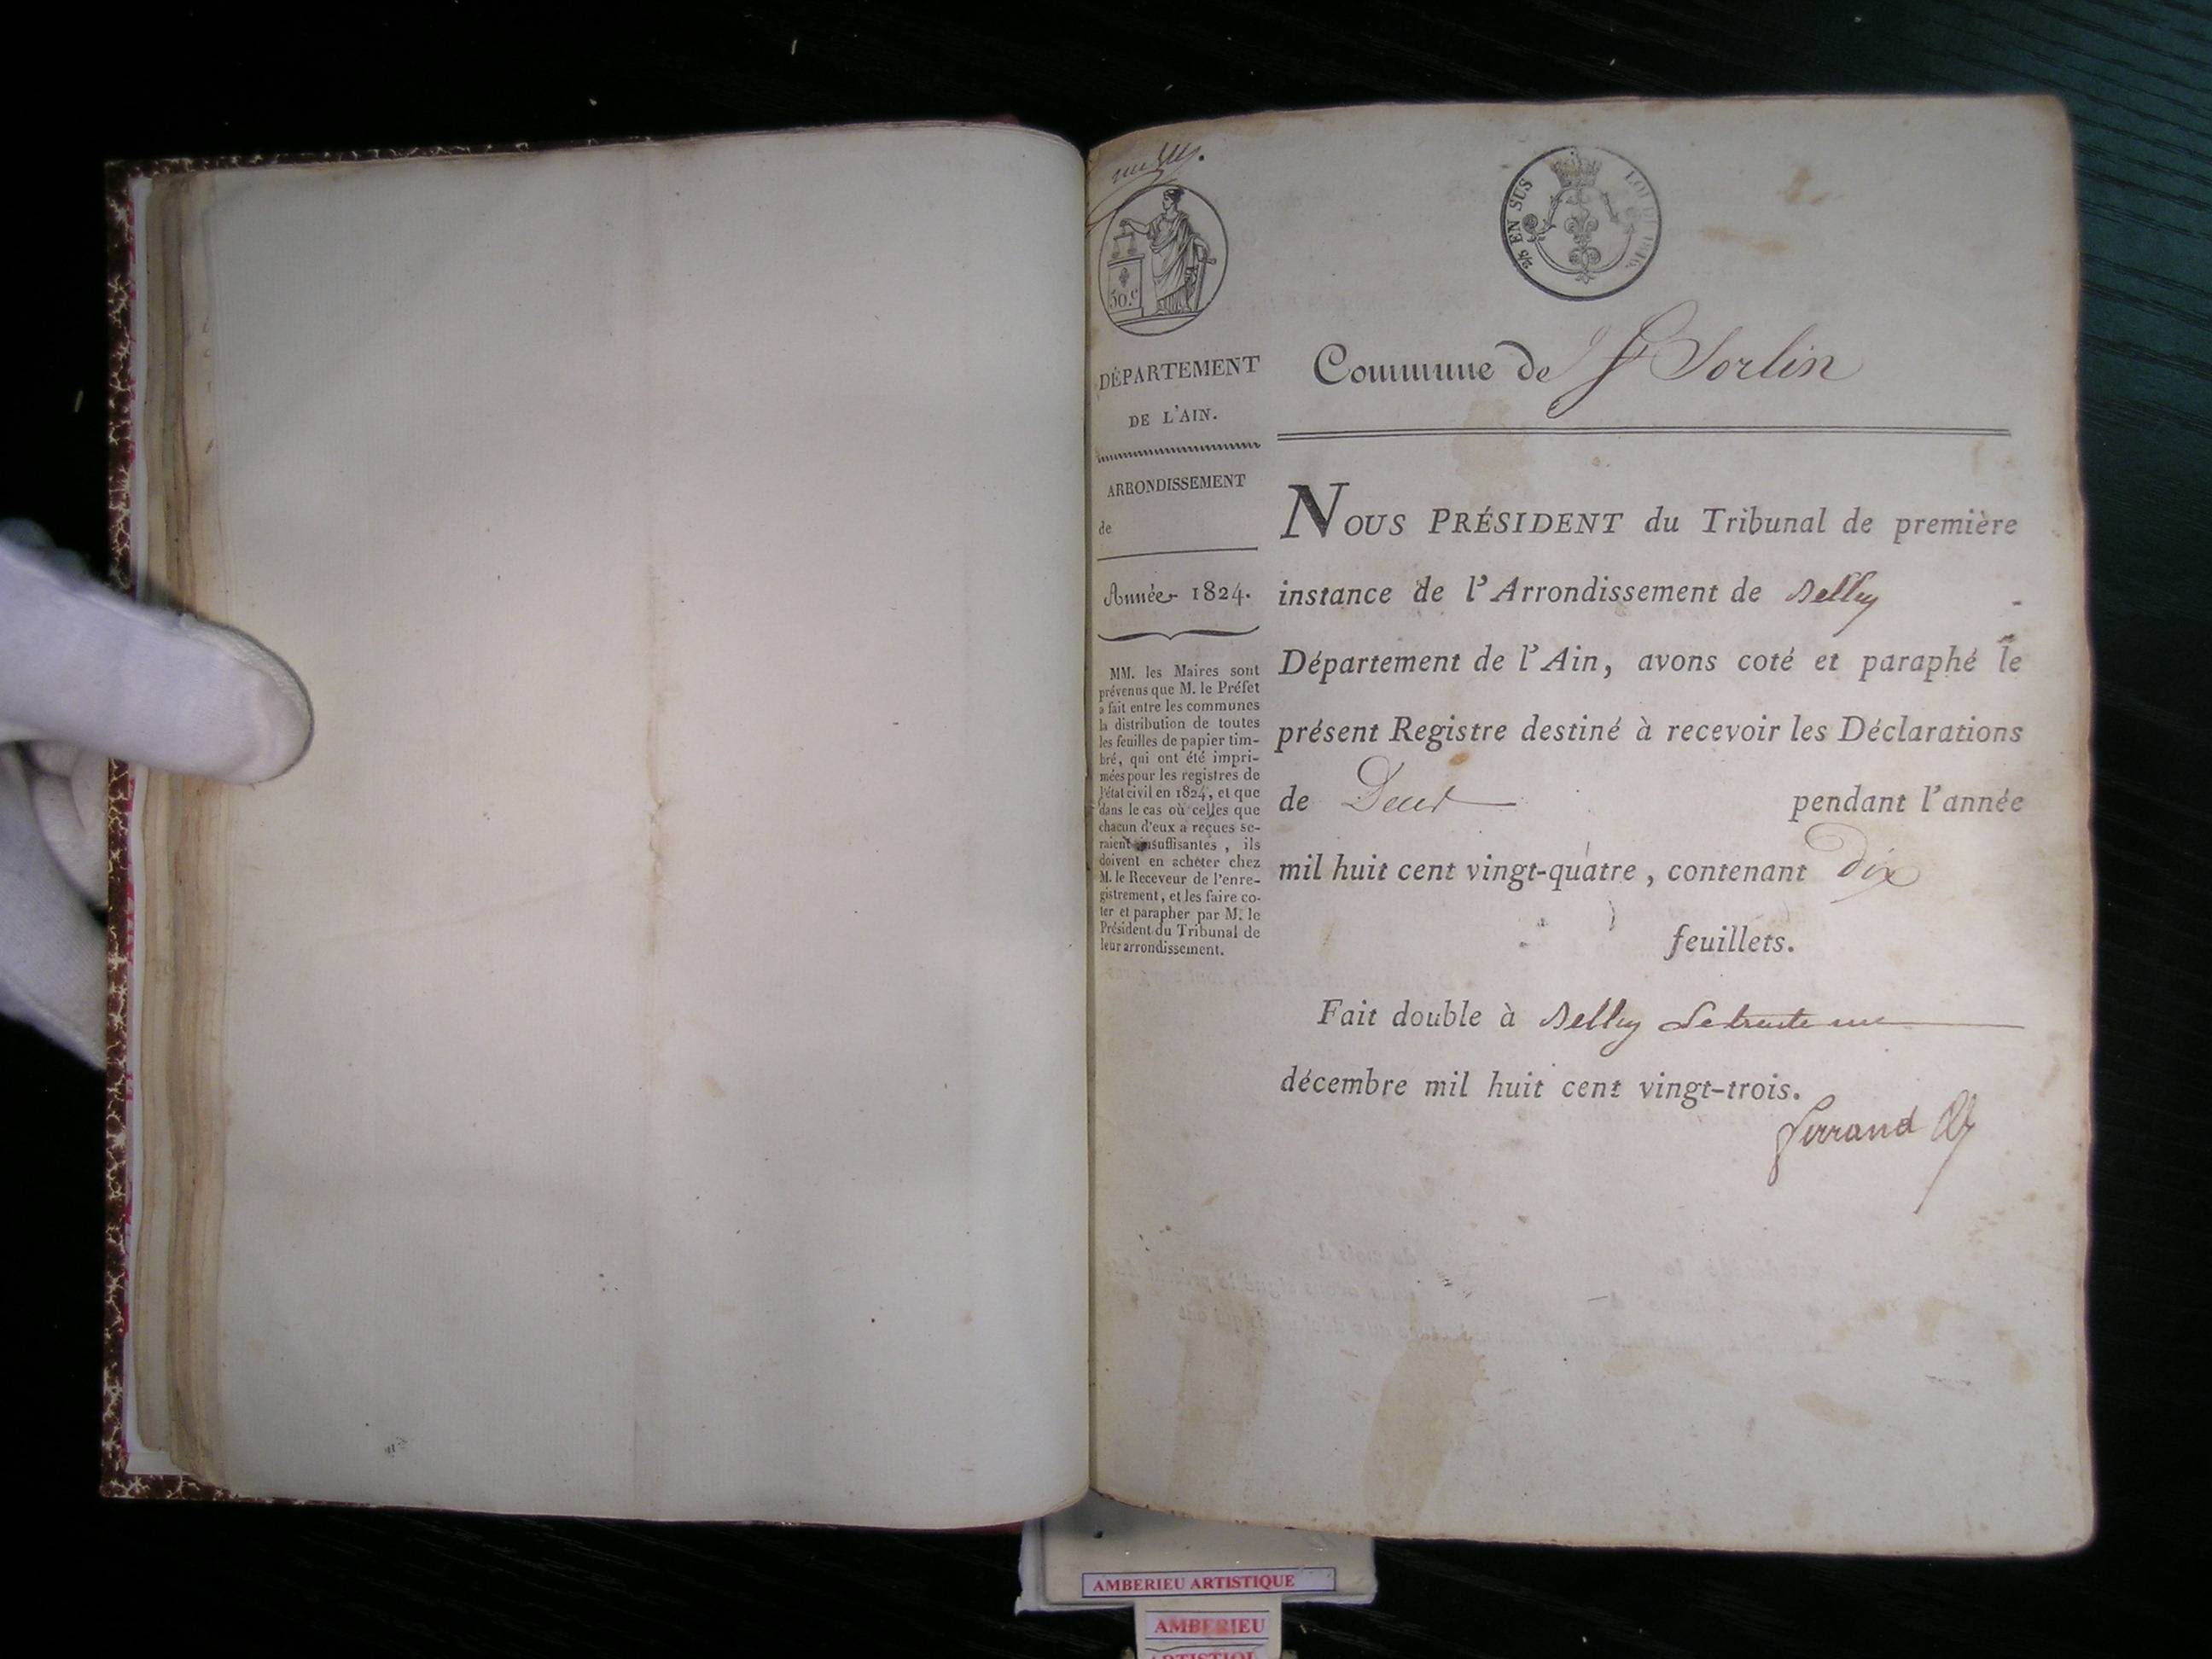 50.c
2/5 EN SUS LOI DE 1816.
DÉPARTEMENT
DE L'AIN.
ARRONDISSEMENT
de
Année 1824.
MM. les Maires sont
prévenus que M. le Préfet
a fait entre les communes
la distribution de toutes
les feuilles de papier tim-
bré, qui ont été impri-
mées pour les registres de
l'état civil en 1824, et que
dans le cas où celles que
chacun d'eux a reçues se-
raient insuffisantes, ils
doivent en acheter chez
M. le Receveur de l'enre-
gistrement, et les faire co-
ter et parapher par M. le
Président du Tribunal de
leur arrondissement.
Commune de St Sorlin
NOUS PRÉSIDENT du Tribunal de première
instance de l'Arrondissement de Belley
Département de l'Ain, avons coté et paraphé le
présent Registre destiné à recevoir les Déclarations
de pendant l'année
mil huit cent vingt-quatre, contenant dix
feuillets.
Fait double à Belley Le trente un
décembre mil huit cent vingt-trois.
Ferrand
AMBERIEU ARTISTIQUE
AMBERIEU
ARTISTIQUE